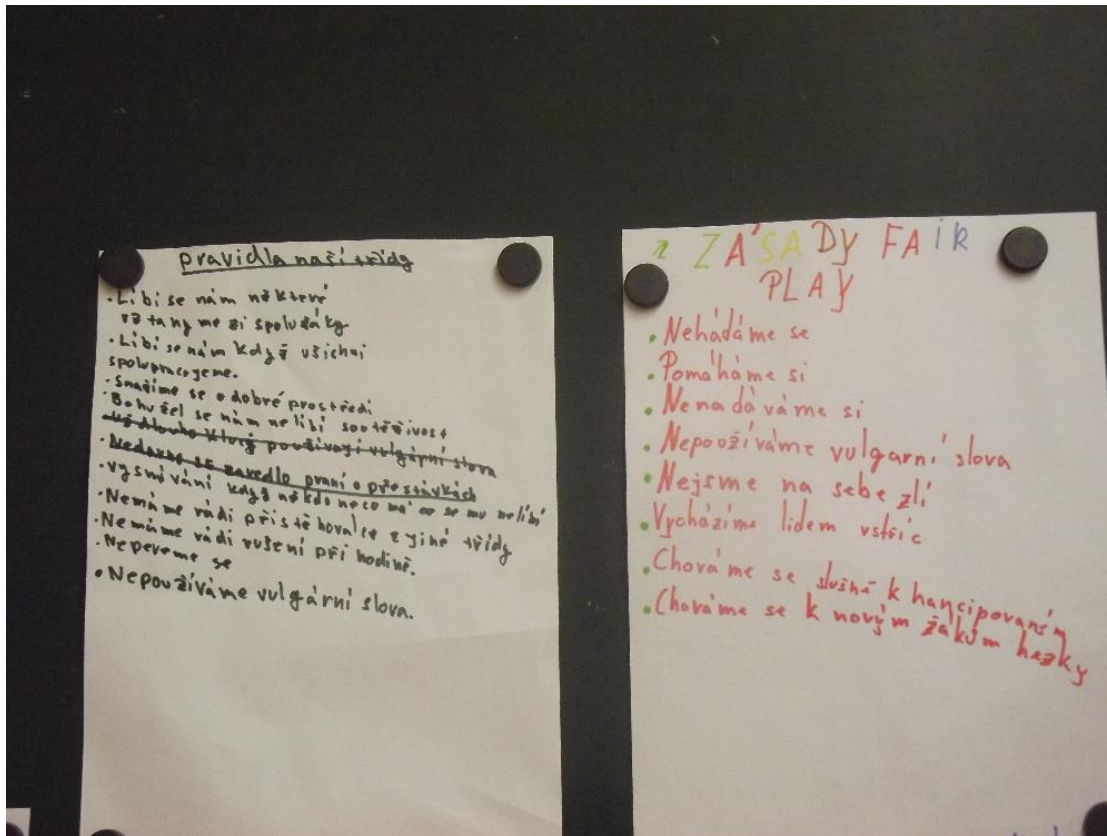 pravidla naší třídy
• Líbí se nám některé
vztahy mezi spolužáky
• Líbí se nám když všichni
spolupracujeme.
• Snažíme se o dobré prostředí
• Bohužel se nám nelíbí soutěživost
Už dlouho kluci používají vulgární slova
• Nedávno se zavedlo praní o přestávkách
• vysmívání když někdo neco má co se mu nelíbí
• Nemáme rádi přistěhovalce z jiné třídy
• Nemáme rádi rušení při hodině.
• Nepereme se
• Nepoužíváme vulgární slova.
ZÁSADY FAIR
PLAY
• Nehádáme se
• Pomáháme si
• Nenadáváme si
• Nepoužíváme vulgarní slova
• Nejsme na sebe zlí
• Vycházíme lidem vstříc
• Chováme se slušně k hancipovaným
• Chováme se k novým žákům hezky